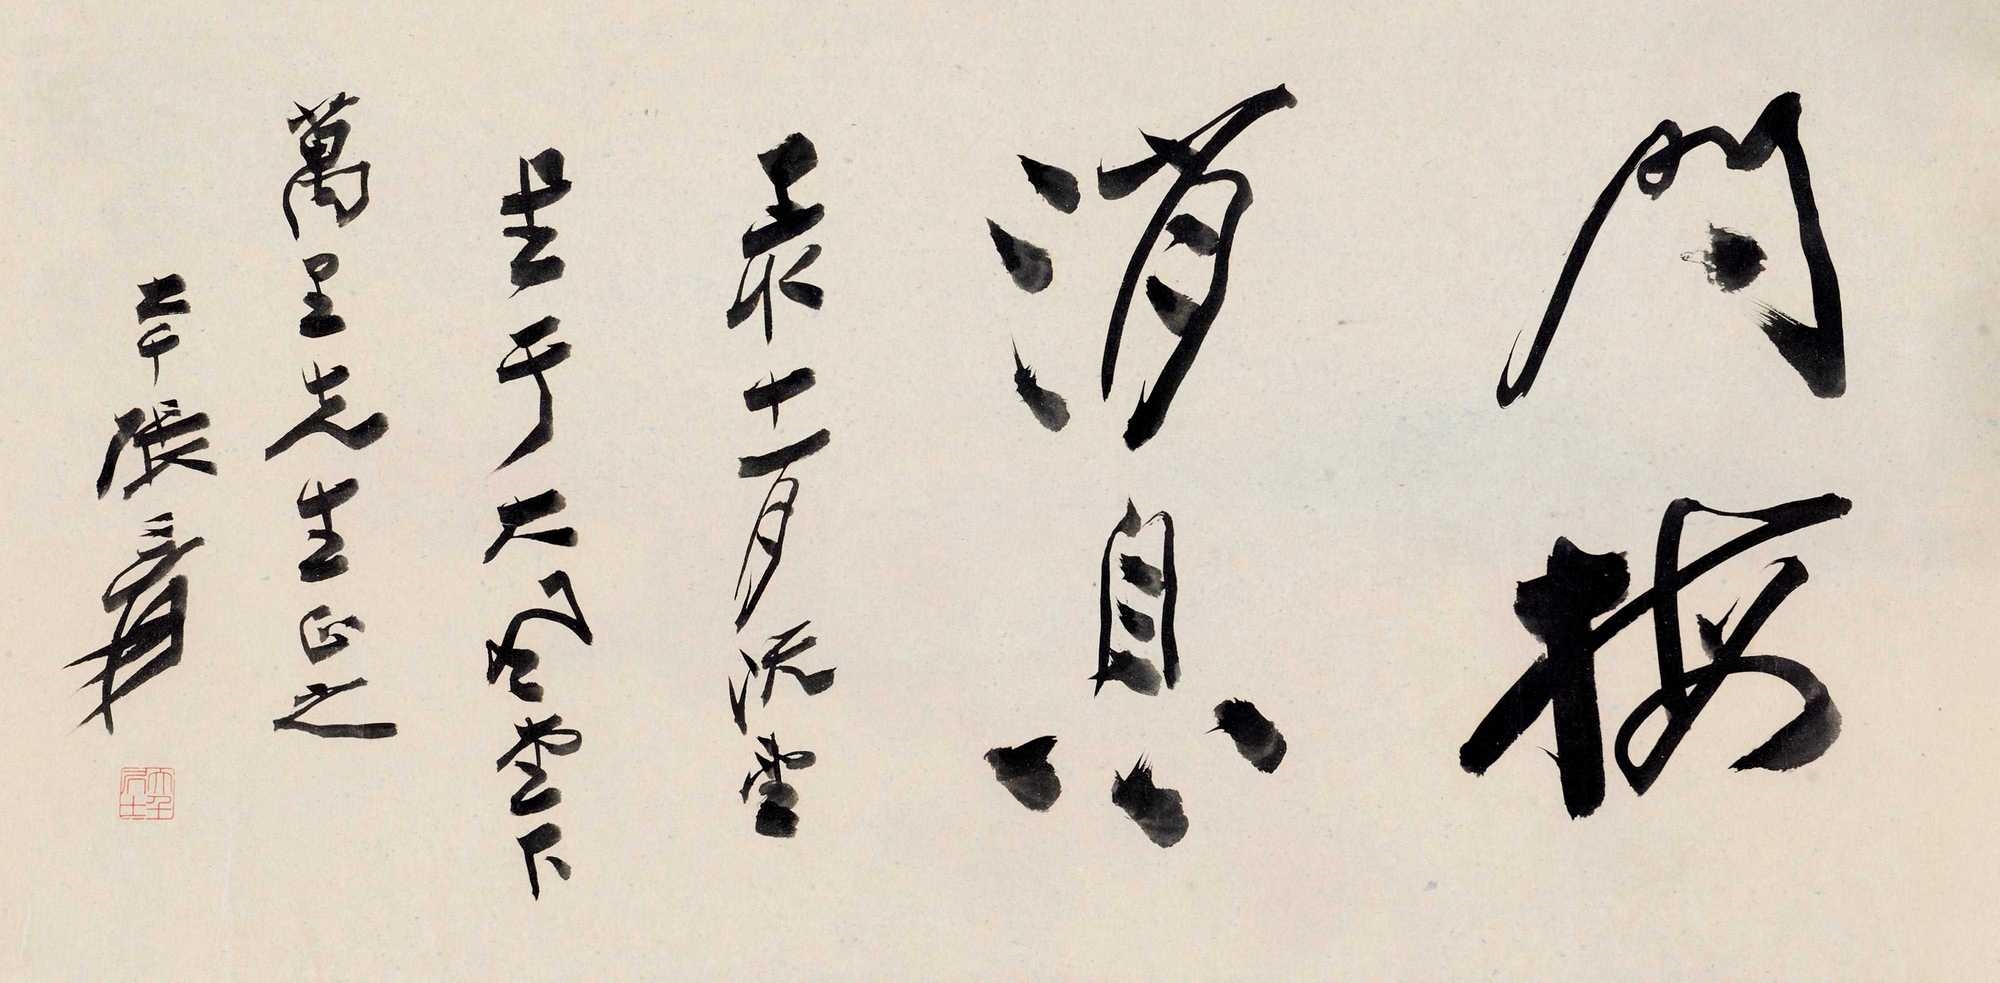 問梅
消息
十一月既望
書于大風堂下
萬里先生正之
大千張爰
大千居士